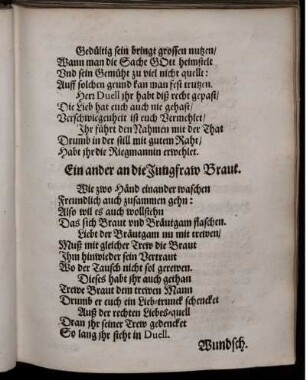 Gedültig sein bringt grossen nutzen/
Wann man die Sache GOtt heimstelt
Vnd sein Gemüht zu viel nicht quellt:
Auff solchen grund kan man fest trutzen.
Herr Duell jhr habt diß recht gepast/
Die Lieb hat euch auch nie gehast/
Verschwiegenheit ist euch Vermehlet/
Ihr führt den Nahmen mit der That
Drumb in der still mit gutem Raht/
Habt jhr die Riegmannin erwehlet.
Ein ander an die Jungfraw Braut.
Wie zwo Händ einander waschen
Freundlich auch zusammen gehn:
Also wil es auch wollstehn
Das sich Braut vnd Bräutgam flaschen.
Liebt der Bräutgam nu mit trewen/
Muß mit gleicher Trew die Braut
Ihm hinwieder sein Vertraut
Wo der Tausch nicht sol gerewen.
Dieses habt jhr auch gethan
Trewe Braut dem trewen Mann
Drumb er euch ein Lieb-trunck schencket
Auß der rechten Liebes-quell
Dran jhr seiner Trew gedencket
So lang jhr steht in Duell.
Wundsch.